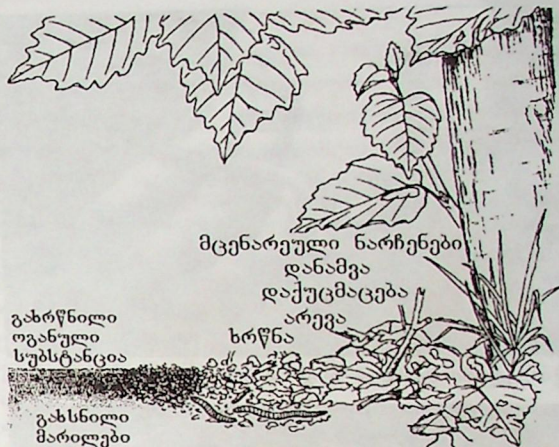 მცენარეული ნარჩენები
დანამვა
დაქუცმაცება
არევა
ხრწნა
გახრწნილი
ოგანული
სუბსტანცია
გახსნილი
მარილები